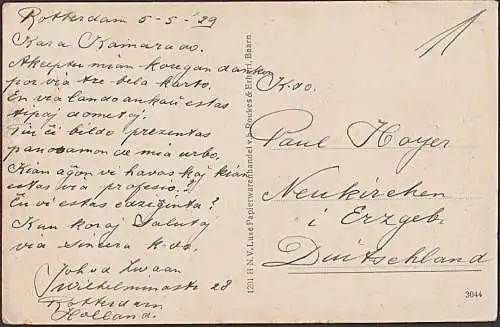 Rotterdam 5-5-'29
Kara Kamarado.
Akceptu mian koregan dankon
por via tre bela karto.
En via lando ankaŭ estas
tipaj dometoj.
Tiu ĉi bildo prezentas
panoramon de mia urbo.
Kian aĝon vi havas kaj kian
estas via profesio?
Ĉu vi estas edziĝinta?
Kun koraj salutoj
via sincera k-do.
Joh v d Zwaan
Wilhelminastr 28
Rotterdam
Holland.
1201 H N.V. Luxe Papierwarenhandel v.h. Roukes & Erhart, Baarn
K-do.
Paul Hoyer
Neukirchen
i Erzgeb.
Duitschland
3044